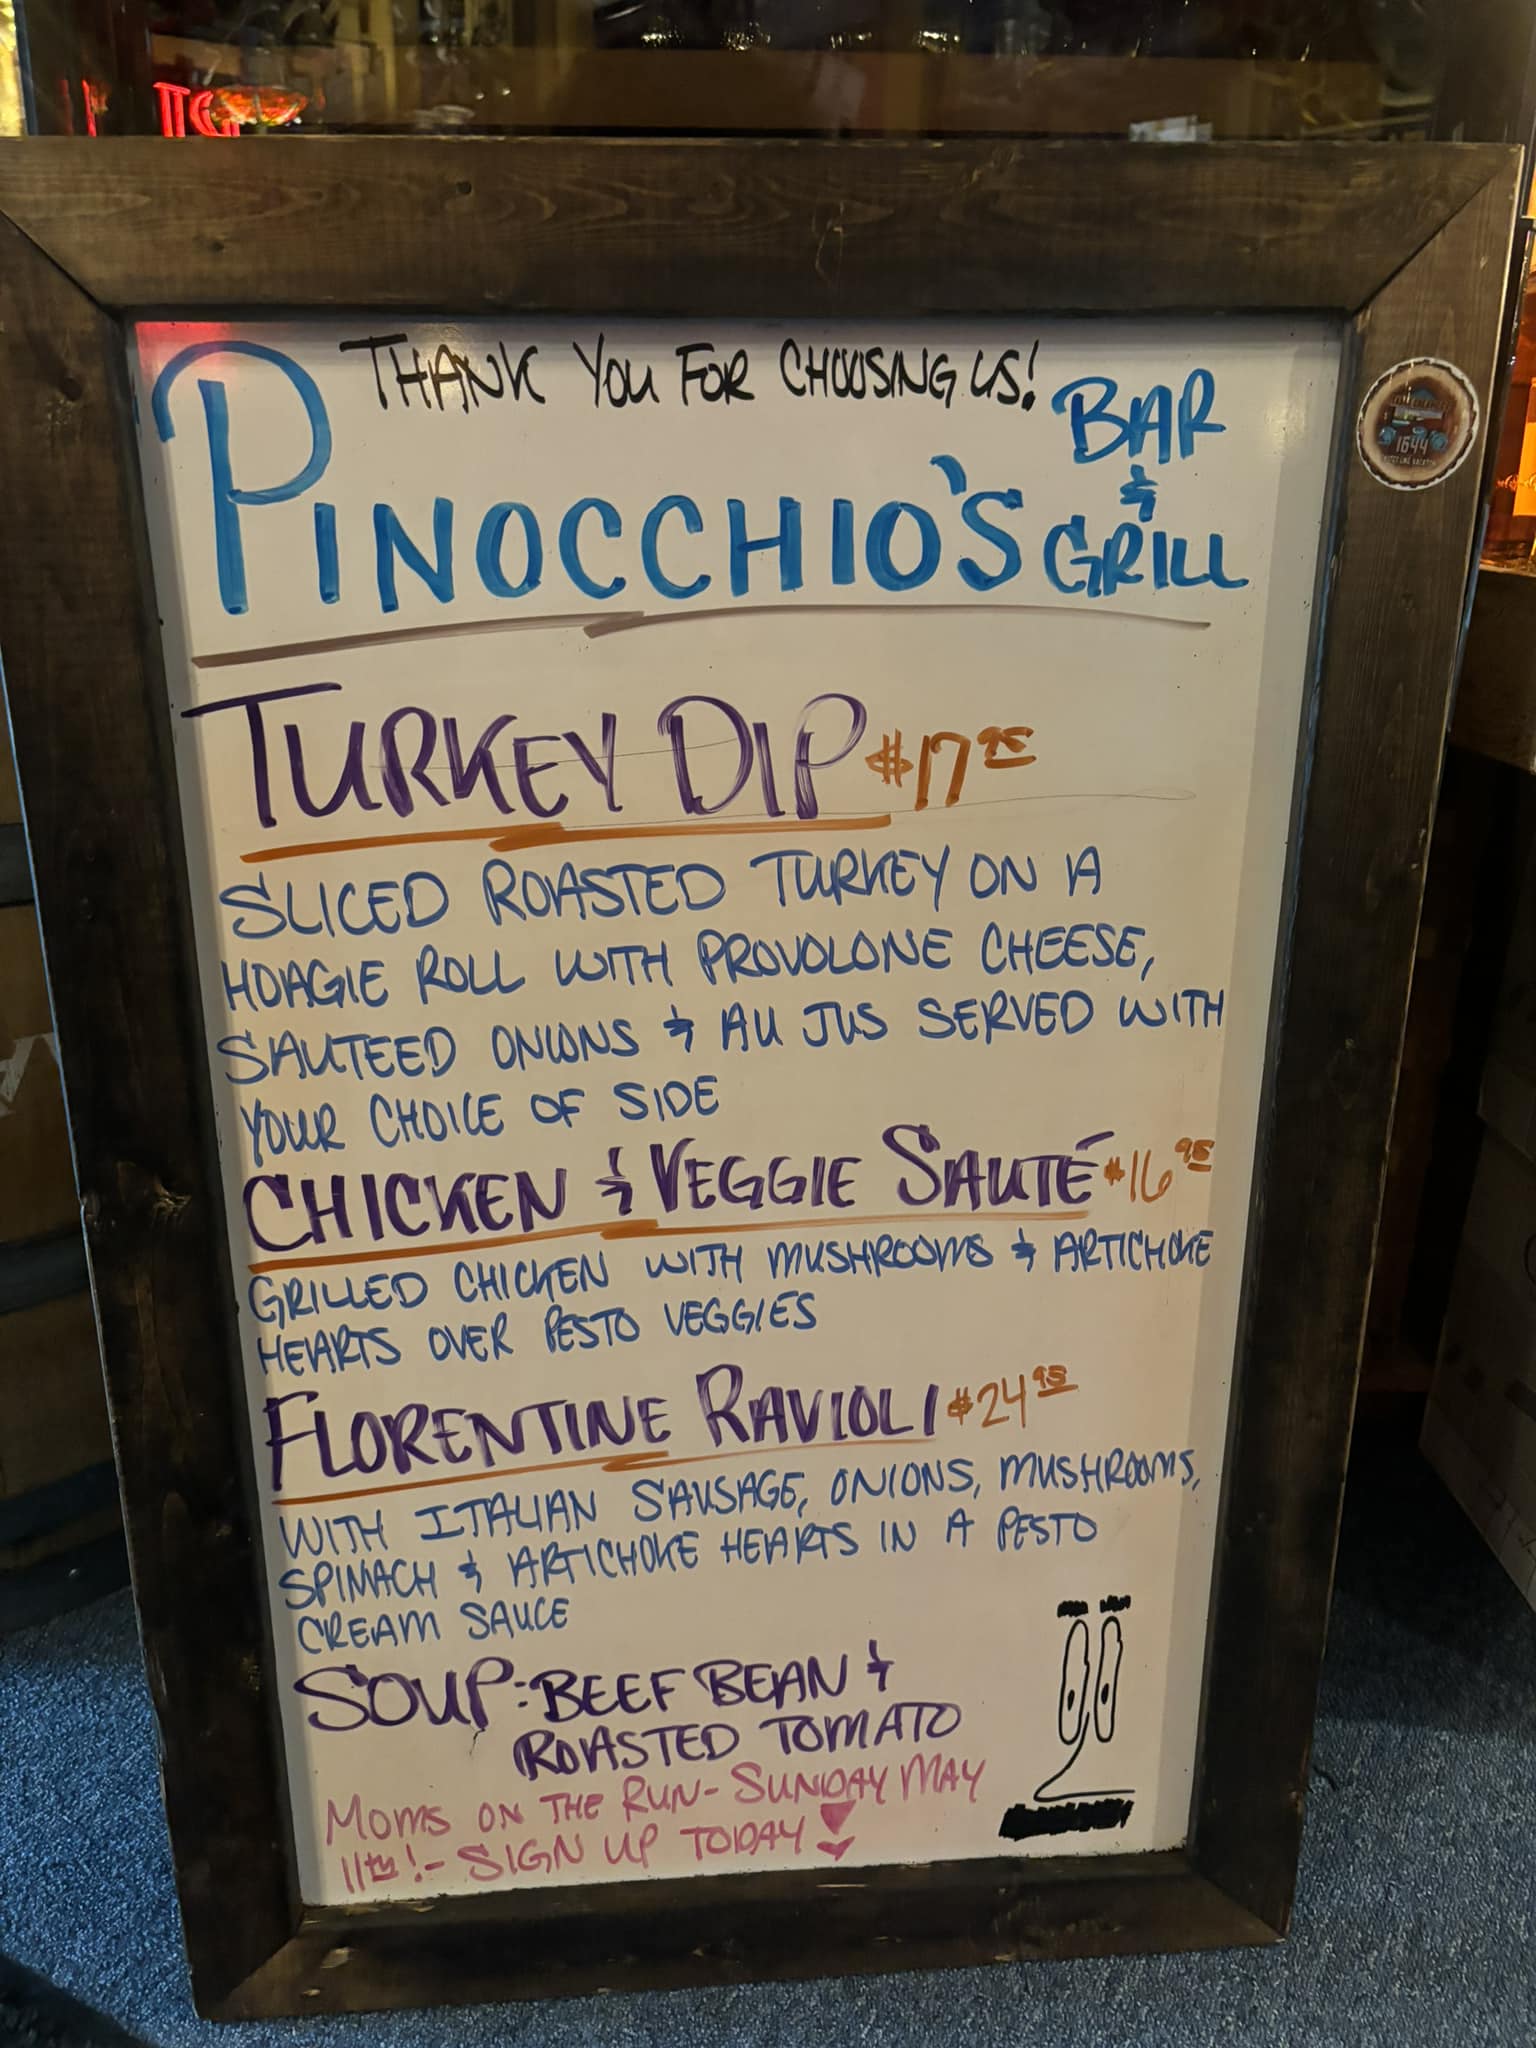 THANK YOU FOR CHOOSING US!
PINOCCHIO'S BAR & GRILL
TURKEY DIP $17.95
SLICED ROASTED TURKEY ON A
HOAGIE ROLL WITH PROVOLONE CHEESE,
SAUTEED ONIONS & AU JUS SERVED WITH
YOUR CHOICE OF SIDE
CHICKEN & VEGGIE SAUTÉ $16.95
GRILLED CHICKEN WITH MUSHROOMS & ARTICHOKE
HEARTS OVER PESTO VEGGIES
FLORENTINE RAVIOLI $24.95
WITH ITALIAN SAUSAGE, ONIONS, MUSHROOMS,
SPINACH & ARTICHOKE HEARTS IN A PESTO
CREAM SAUCE
SOUP: BEEF BEAN &
ROASTED TOMATO
MOMS ON THE RUN- SUNDAY MAY
11TH!- SIGN UP TODAY
1644